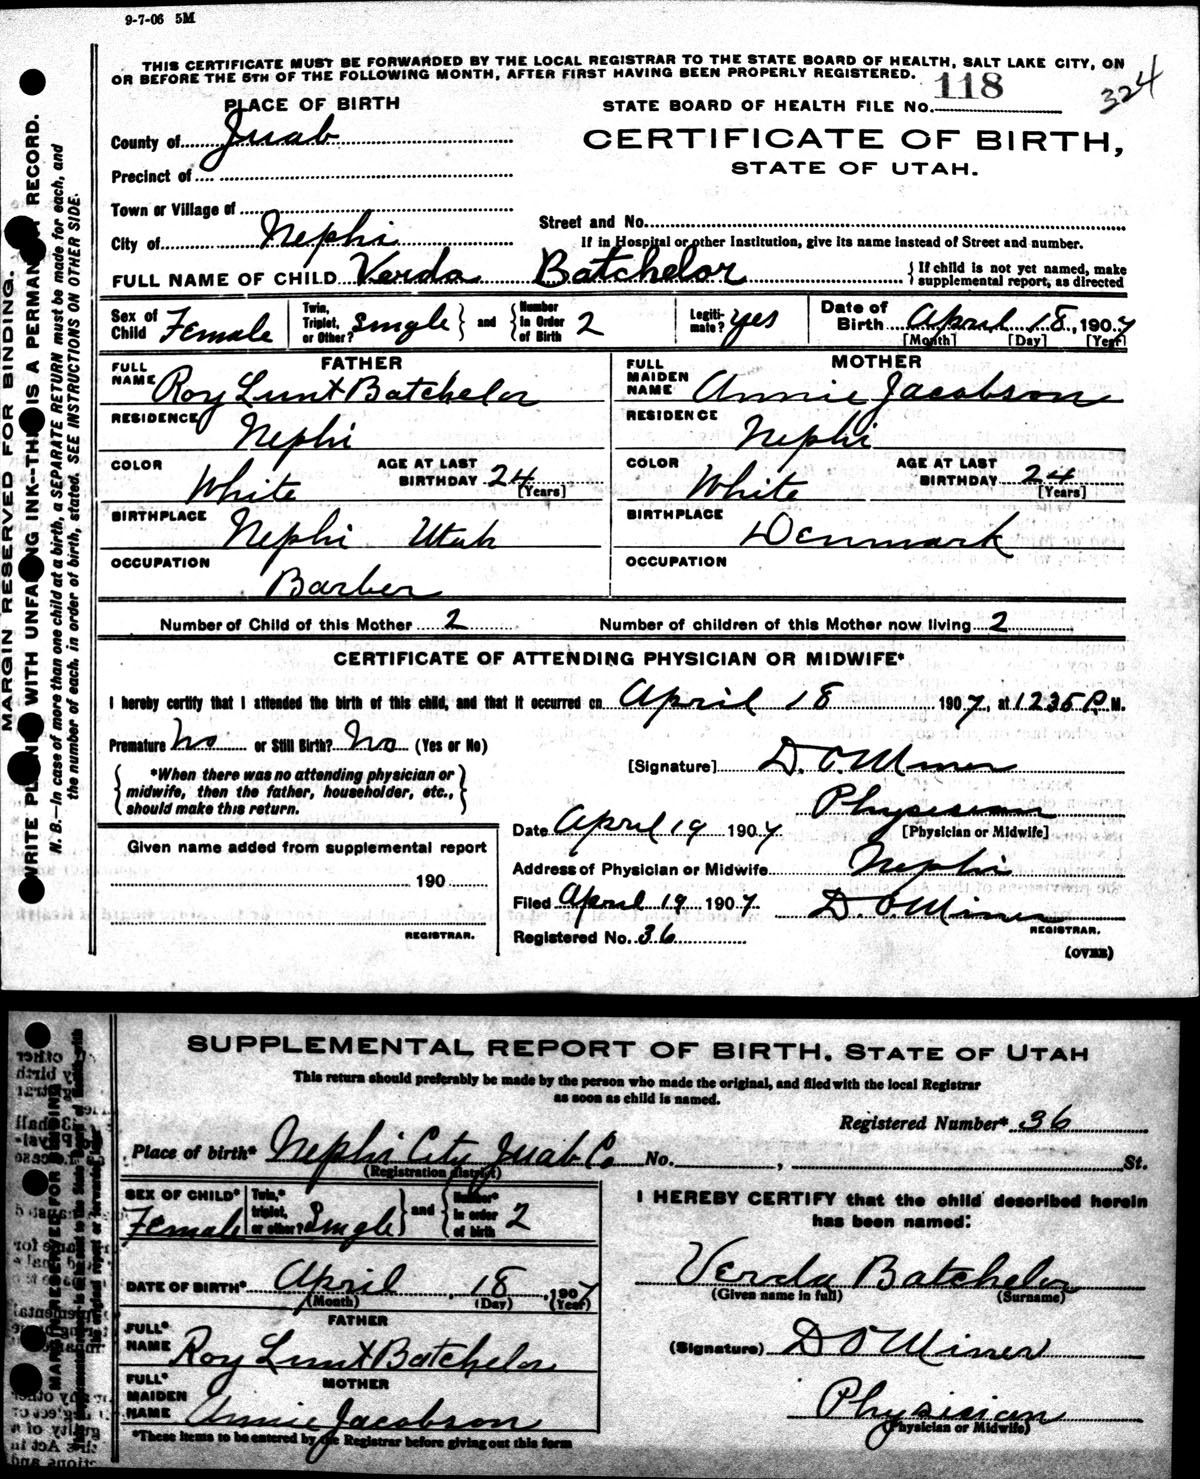 9-7-06 5M
THIS CERTIFICATE MUST BE FORWARDED BY THE LOCAL REGISTRAR TO THE STATE BOARD OF HEALTH, SALT LAKE CITY, ON
OR BEFORE THE 5TH OF THE FOLLOWING MONTH, AFTER FIRST HAVING BEEN PROPERLY REGISTERED.
324
PLACE OF BIRTH
STATE BOARD OF HEALTH FILE No. 118
County of Juab
CERTIFICATE OF BIRTH,
STATE OF UTAH.
Precinct of
Town or Village of
Street and No.
City of Nephi
If in Hospital or other Institution, give its name instead of Street and number.
FULL NAME OF CHILD Verda Batchelor
{ If child is not yet named, make
supplemental report, as directed
Sex of Child Female
Twin, Triplet, or Other? single } and { Number In Order of Birth 2
Legitimate? yes
Date of Birth April 18, 1907
[Month] [Day] [Year]
FATHER
FULL NAME Roy Lunt Batchelor
RESIDENCE Nephi
COLOR White
AGE AT LAST BIRTHDAY 24 [Years]
BIRTHPLACE Nephi Utah
OCCUPATION Barber
MOTHER
FULL MAIDEN NAME Annie Jacobson
RESIDENCE Nephi
COLOR White
AGE AT LAST BIRTHDAY 24 [Years]
BIRTHPLACE Denmark
OCCUPATION
Number of Child of this Mother 2
Number of children of this Mother now living 2
CERTIFICATE OF ATTENDING PHYSICIAN OR MIDWIFE*
I hereby certify that I attended the birth of this child, and that it occurred on April 18 1907, at 1235 P. M.
Premature No or Still Birth? No (Yes or No)
{ *When there was no attending physician or
midwife, then the father, householder, etc.,
should make this return. }
[Signature] D. O. Miner
Physician
[Physician or Midwife]
Date April 19 1907
Address of Physician or Midwife Nephi
Filed April 19 1907 D. O. Miner
REGISTRAR.
Registered No. 36
(OVER)
Given name added from supplemental report
190
REGISTRAR.
MARGIN RESERVED FOR BINDING.
WRITE WITH UNFADING INK--THIS IS A PERMANENT RECORD.
N. B.—In case of more than one child at a birth, a SEPARATE RETURN must be made for each, and
the number of each, in order of birth, stated. SEE INSTRUCTIONS ON OTHER SIDE.
SUPPLEMENTAL REPORT OF BIRTH, STATE OF UTAH
This return should preferably be made by the person who made the original, and filed with the local Registrar
as soon as child is named.
Registered Number* 36
Place of birth* Nephi City Juab Co No. , St.
(Registration district)
SEX OF CHILD* Female
Twin,* triplet, or other? Single } and { Number* in order of birth 2
DATE OF BIRTH* April 18, 1907
(Month) (Day) (Year)
FATHER
FULL* NAME Roy Lunt Batchelor
MOTHER
FULL* MAIDEN NAME Annie Jacobson
*These items to be entered by the Registrar before giving out this form
I HEREBY CERTIFY that the child described herein
has been named:
Verda Batchelor
(Given name in full) (Surname)
(Signature) D O Miner
Physician
(Physician or Midwife)